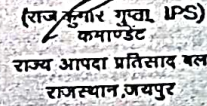 (राज कुमार गुप्ता IPS)
कमाण्डेंट
राज्य आपदा प्रतिसाद बल
राजस्थान,जयपुर